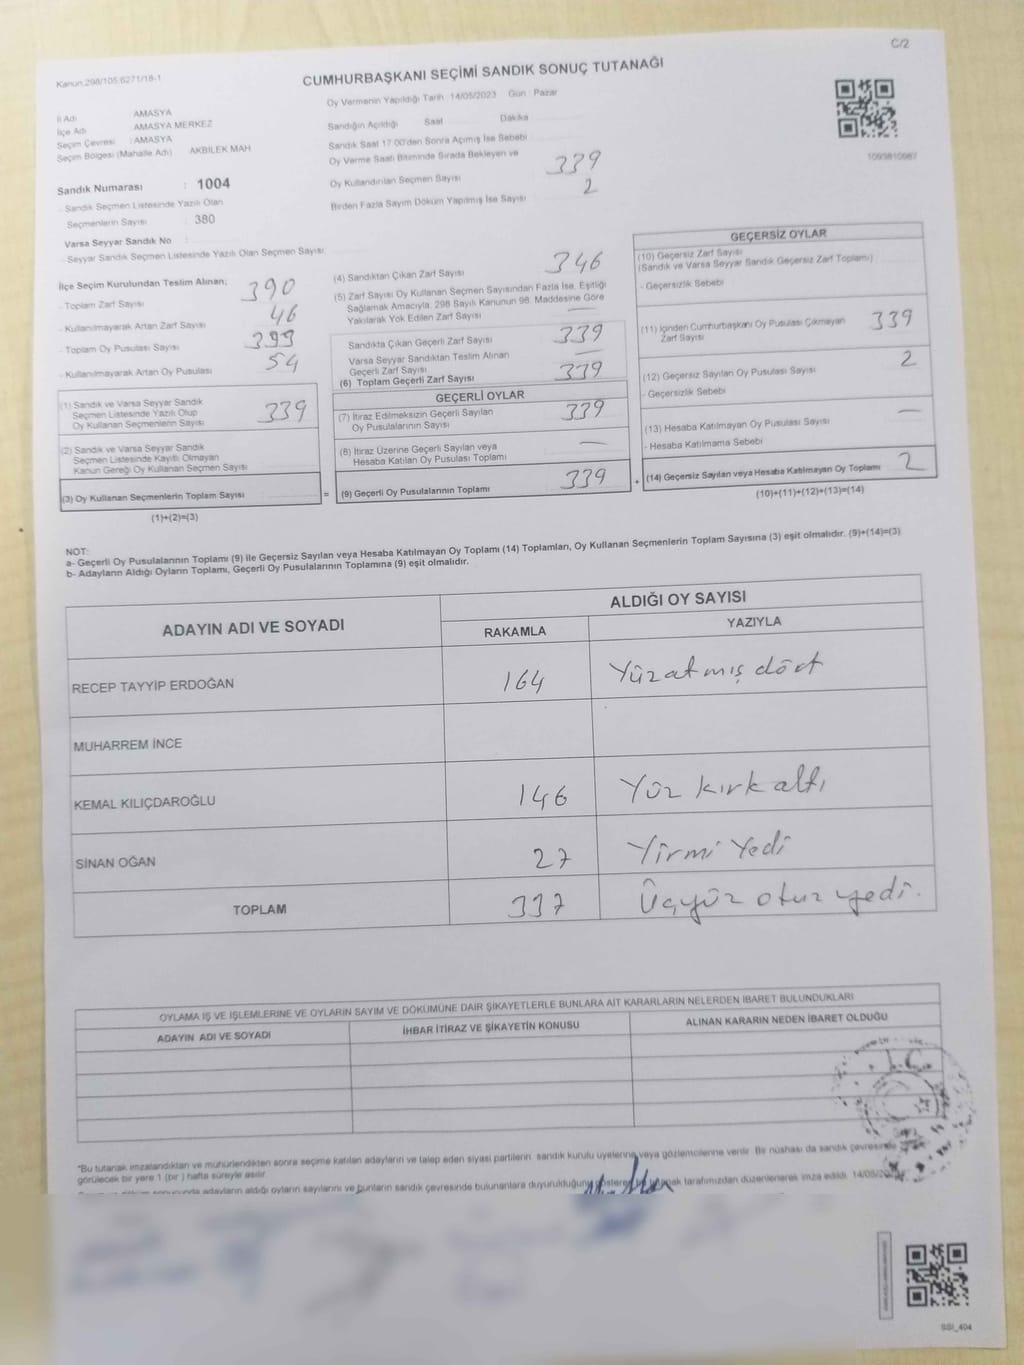 C/2
Kanun:298/105;6271/18-1
CUMHURBAŞKANI SEÇİMİ SANDIK SONUÇ TUTANAĞI
Oy Vermenin Yapıldığı Tarih : 14/05/2023 Gün : Pazar
İl Adı : AMASYA
İlçe Adı : AMASYA MERKEZ
Seçim Çevresi : AMASYA
Seçim Bölgesi (Mahalle Adı) : AKBİLEK MAH
Sandık Numarası : 1004
- Sandık Seçmen Listesinde Yazılı Olan
Seçmenlerin Sayısı : 380
Varsa Seyyar Sandık No :
- Seyyar Sandık Seçmen Listesinde Yazılı Olan Seçmen Sayısı:
Sandığın Açıldığı Saat Dakika
Sandık Saat 17:00'den Sonra Açımış İse Sebebi
Oy Verme Saati Bitiminde Sırada Bekleyen ve
Oy Kullandırılan Seçmen Sayısı 339
Birden Fazla Sayım Döküm Yapılmış İse Sayısı 2
İlçe Seçim Kurulundan Teslim Alınan;
- Toplam Zarf Sayısı 390
- Kullanılmayarak Artan Zarf Sayısı 46
- Toplam Oy Pusulası Sayısı 399
- Kullanılmayarak Artan Oy Pusulası 54
(1) Sandık ve Varsa Seyyar Sandık
Seçmen Listesinde Yazılı Olup
Oy Kullanan Seçmenlerin Sayısı 339
(2) Sandık ve Varsa Seyyar Sandık
Seçmen Listesinde Kayıtlı Olmayan
Kanun Gereği Oy Kullanan Seçmen Sayısı
(3) Oy Kullanan Seçmenlerin Toplam Sayısı =
(1)+(2)=(3)
(4) Sandıktan Çıkan Zarf Sayısı 346
(5) Zarf Sayısı Oy Kullanan Seçmen Sayısından Fazla İse, Eşitliği
Sağlamak Amacıyla; 298 Sayılı Kanunun 98. Maddesine Göre
Yakılarak Yok Edilen Zarf Sayısı —
Sandıkta Çıkan Geçerli Zarf Sayısı 339
Varsa Seyyar Sandıktan Teslim Alınan
Geçerli Zarf Sayısı —
(6) Toplam Geçerli Zarf Sayısı 339
GEÇERLİ OYLAR
(7) İtiraz Edilmeksizin Geçerli Sayılan
Oy Pusulalarının Sayısı 339
(8) İtiraz Üzerine Geçerli Sayılan veya
Hesaba Katılan Oy Pusulası Toplamı —
(9) Geçerli Oy Pusulalarının Toplamı 339 +
GEÇERSİZ OYLAR
(10) Geçersiz Zarf Sayısı
(Sandık ve Varsa Seyyar Sandık Geçersiz Zarf Toplamı)
- Geçersizlik Sebebi
(11) İçinden Cumhurbaşkanı Oy Pusulası Çıkmayan
Zarf Sayısı 339
(12) Geçersiz Sayılan Oy Pusulası Sayısı 2
- Geçersizlik Sebebi
(13) Hesaba Katılmayan Oy Pusulası Sayısı —
- Hesaba Katılmama Sebebi
(14) Geçersiz Sayılan veya Hesaba Katılmayan Oy Toplamı 2
(10)+(11)+(12)+(13)=(14)
NOT:
a- Geçerli Oy Pusulalarının Toplamı (9) ile Geçersiz Sayılan veya Hesaba Katılmayan Oy Toplamı (14) Toplamları, Oy Kullanan Seçmenlerin Toplam Sayısına (3) eşit olmalıdır. (9)+(14)=(3)
b- Adayların Aldığı Oyların Toplamı, Geçerli Oy Pusulalarının Toplamına (9) eşit olmalıdır.
ADAYIN ADI VE SOYADI
ALDIĞI OY SAYISI
RAKAMLA YAZIYLA
RECEP TAYYİP ERDOĞAN 164 Yüzatmış dört
MUHARREM İNCE
KEMAL KILIÇDAROĞLU 146 Yüz kırk altı
SİNAN OĞAN 27 Yirmi Yedi
TOPLAM 337 Üçyüz otuz yedi.
OYLAMA İŞ VE İŞLEMLERİNE VE OYLARIN SAYIM VE DÖKÜMÜNE DAİR ŞİKAYETLERLE BUNLARA AİT KARARLARIN NELERDEN İBARET BULUNDUKLARI
ADAYIN ADI VE SOYADI İHBAR İTİRAZ VE ŞİKAYETİN KONUSU ALINAN KARARIN NEDEN İBARET OLDUĞU
T.C.
"Bu tutanak imzalandıktan ve mühürlendikten sonra seçime katılan adayların ve talep eden siyasi partilerin sandık kurulu üyelerine veya gözlemcilerine verilir. Bir nüshası da sandık çevresinde
görülecek bir yere 1 (bir ) hafta süreyle asılır.
sonucunda adayların aldığı oyların sayılarını ve bunların sandık çevresinde bulunanlara duyurulduğunu gösteren tutanak tarafımızdan düzenlenerek imza edildi. 14/05/20
SSI_404